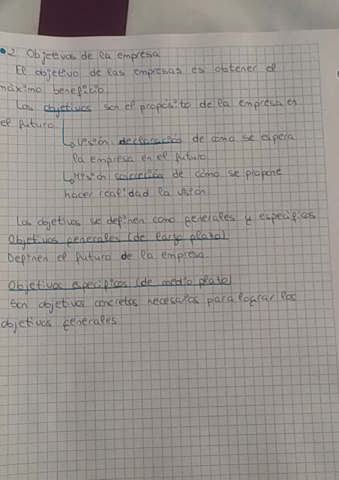 2. Objetivos de la empresa
El objetivo de las empresas es obtener el
máximo beneficio.
Los objetivos son el propósito de la empresa en
el futuro.
↳ Visión: declaración de cómo se espera
la empresa en el futuro.
↳ Misión de cómo se propone
hacer realidad la visión.
Los objetivos se definen como generales y específicos
Objetivos generales (de largo plazo)
Definen el futuro de la empresa.
Objetivos específicos (de medio plazo)
Son objetivos concretos necesarios para lograr los
objetivos generales